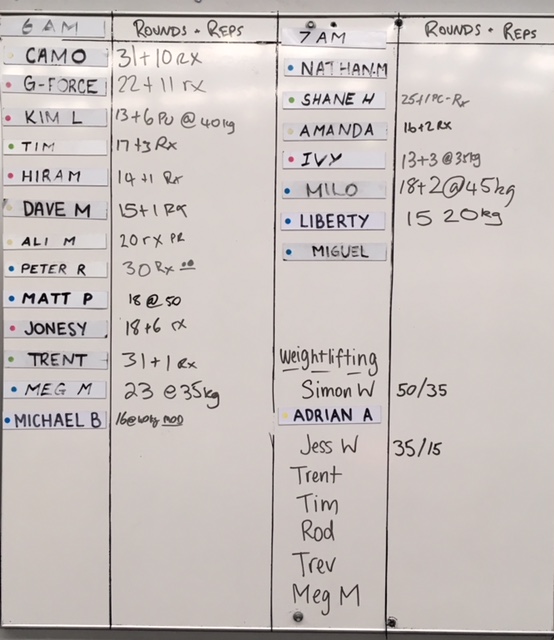 6 AM ROUNDS + REPS
CAMO 31+10 RX
G-FORCE 22+11 rx
KIM L 13+6 PU @ 40kg
TIM 17+3 Rx
HIRAM 14+1 Rx
DAVE M 15+1 Rx
ALI M 20 rx PR
PETER R 30 Rx
MATT P 18 @ 50
JONESY 18+6 rx
TRENT 31+1 Rx
MEG M 23 @ 35kg
MICHAEL B 16@40kg MOD
7 AM ROUNDS + REPS
NATHAN.M
SHANE H 25+1 PC-Rx
AMANDA 16+2 RX
IVY 13+3 @35kg
MILO 18+2@45kg
LIBERTY 15 20kg
MIGUEL
Weightlifting
Simon W 50/35
ADRIAN A
Jess W 35/15
Trent
Tim
Rod
Trev
Meg M